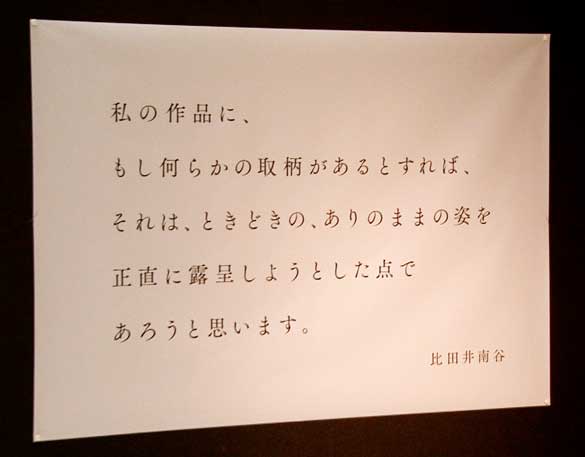 私の作品に、
もし何らかの取柄があるとすれば、
それは、ときどきの、ありのままの姿を
正直に露呈しようとした点で
あろうと思います。
比田井南谷